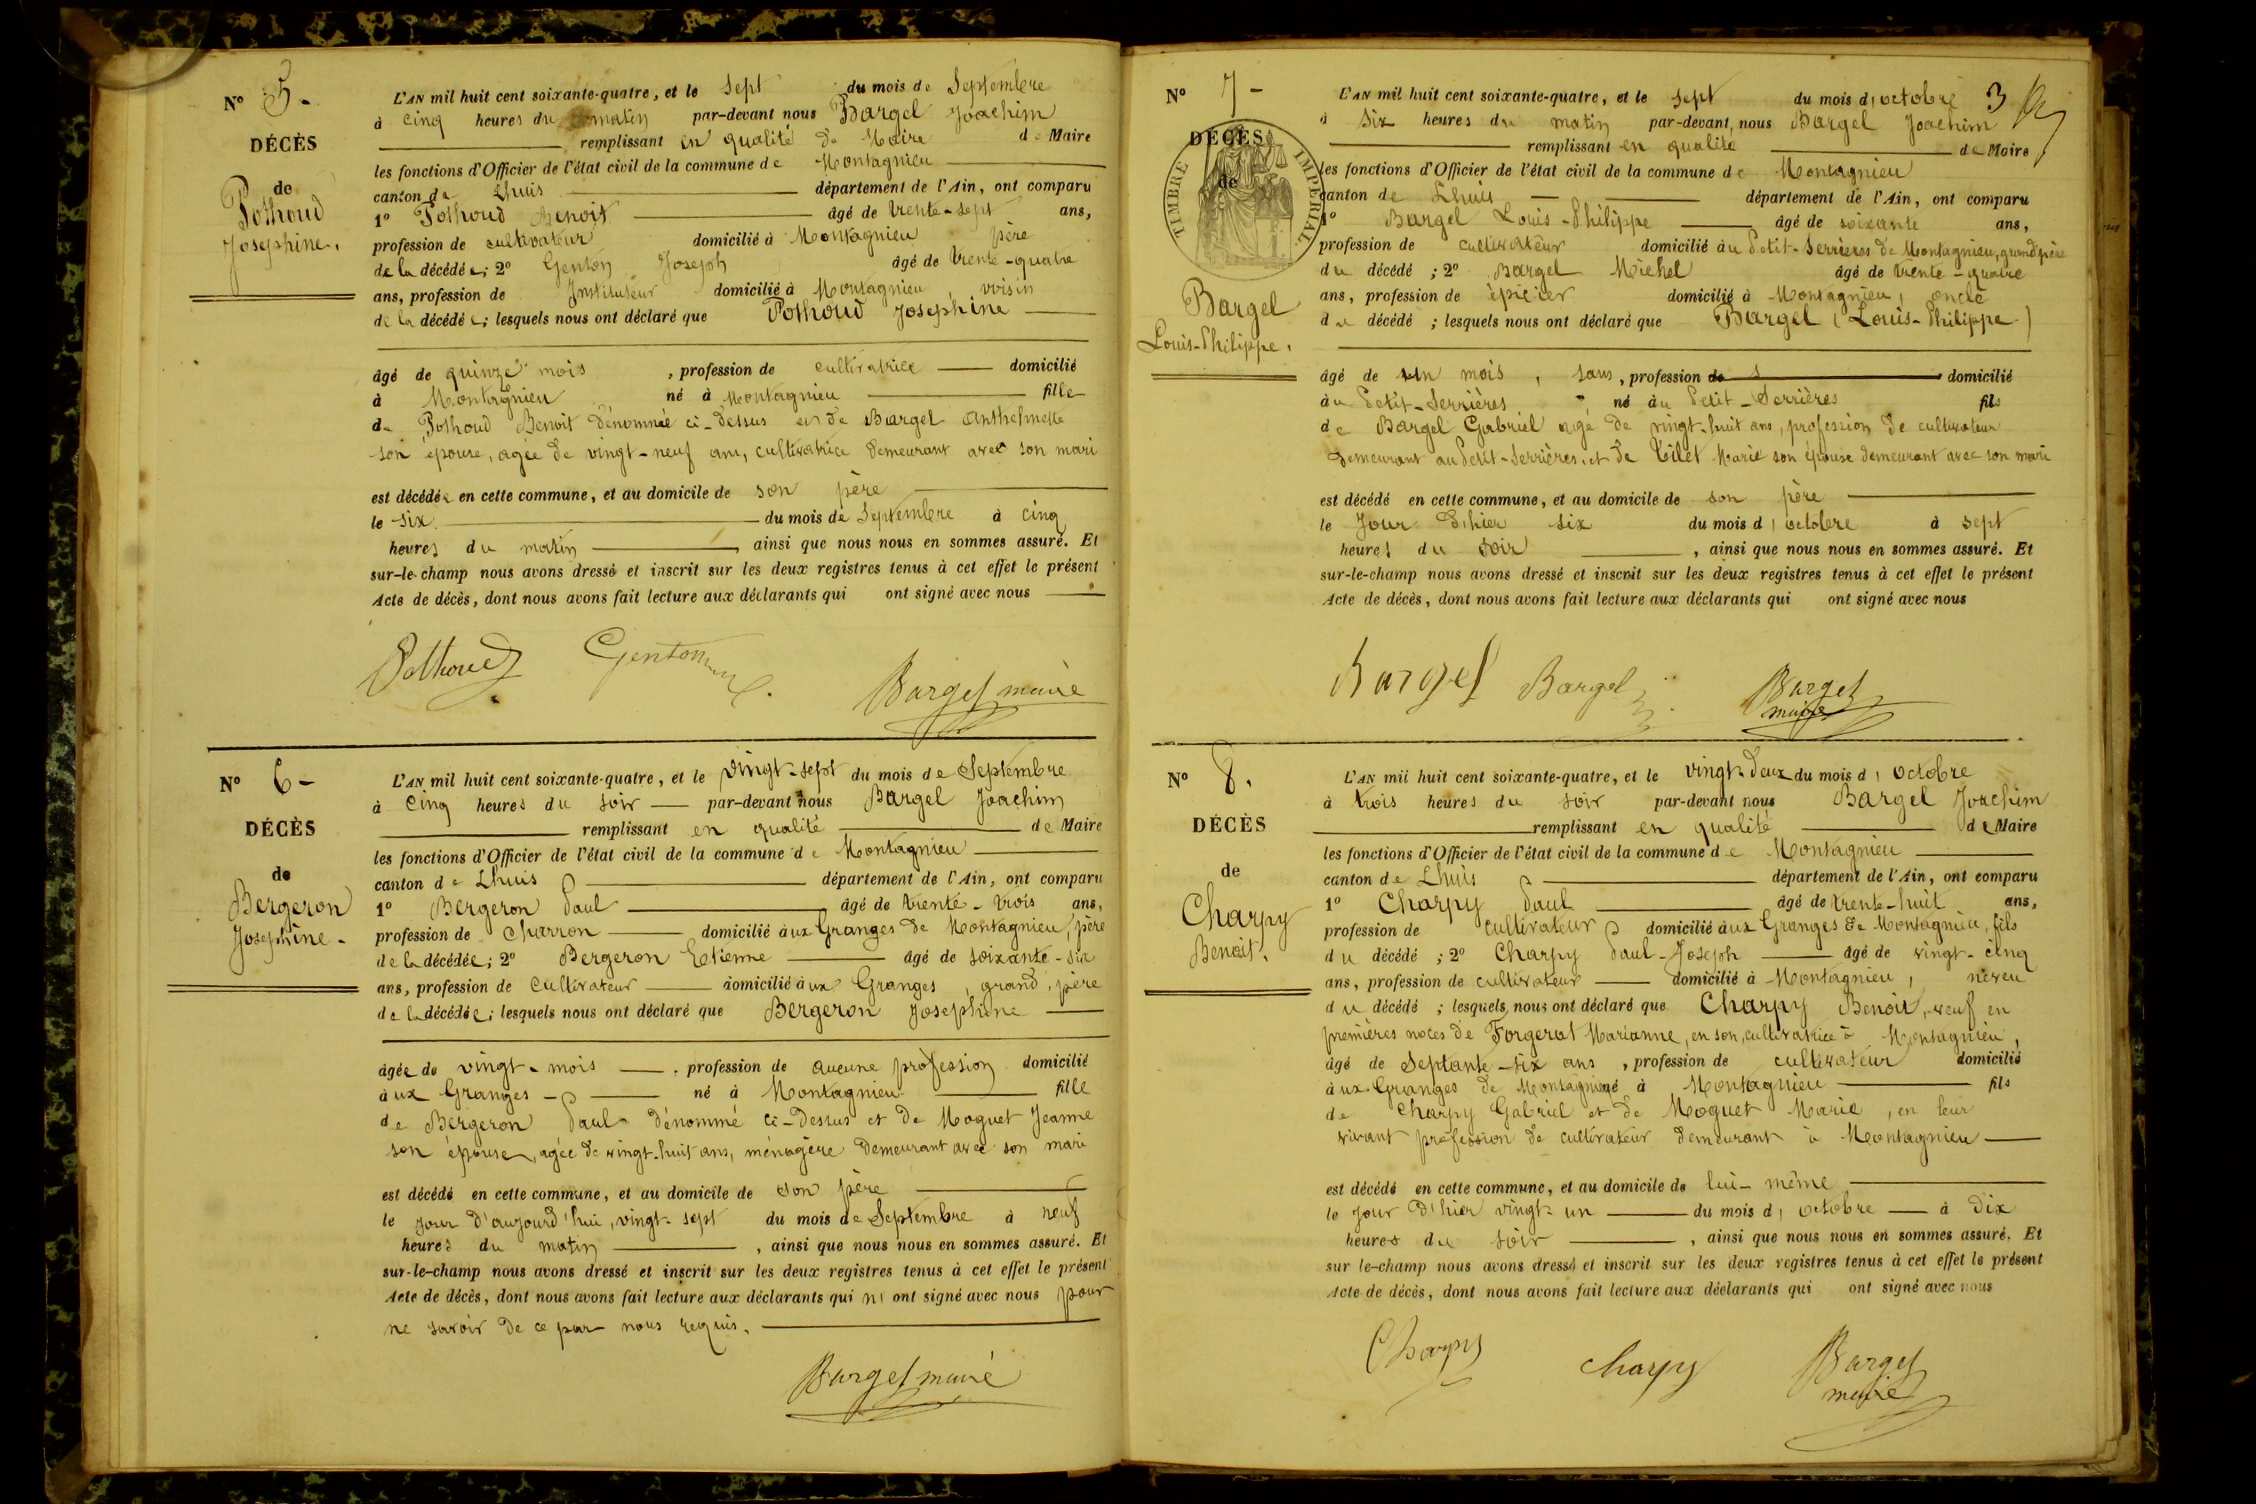 N° 5 -
DÉCÈS
de
Pothoud
Josephine.
L'AN mil huit cent soixante-quatre, et le sept du mois de Septembre
à cinq heures du matin par-devant nous Bargel Joachim
remplissant en qualité de Maire de Maire
les fonctions d'Officier de l'état civil de la commune de Montagnieu
canton de Lhuis département de l'Ain, ont comparu
1° Pothoud Benoit âgé de trente-sept ans,
profession de cultivateur domicilié à Montagnieu père
de la décédée; 2° Genton Joseph âgé de trente-quatre
ans, profession de Instituteur domicilié à Montagnieu, voisin
de la décédée; lesquels nous ont déclaré que Pothoud Josephine
âgé de quinze mois, profession de cultivatrice domicilié
à Montagnieu né à Montagnieu fille
de Pothoud Benoit dénommé ci-dessus et de Bargel Anthelmette
son épouse, agée de vingt-neuf ans, cultivatrice demeurant avec son mari
est décédée en cette commune, et au domicile de son père
le six du mois de Septembre à cinq
heures du matin, ainsi que nous nous en sommes assuré. Et
sur-le-champ nous avons dressé et inscrit sur les deux registres tenus à cet effet le présent
Acte de décès, dont nous avons fait lecture aux déclarants qui ont signé avec nous
Pothoud Genton Bargel maire
N° 6 -
DÉCÈS
de
Bergeron
Josephine -
L'AN mil huit cent soixante-quatre, et le vingt-sept du mois de Septembre
à cinq heures du soir par-devant nous Bargel Joachim
remplissant en qualité de Maire
les fonctions d'Officier de l'état civil de la commune de Montagnieu
canton de Lhuis département de l'Ain, ont comparu
1° Bergeron Paul âgé de trente-trois ans,
profession de Charron domicilié aux Granges de Montagnieu, père
de la décédée; 2° Bergeron Etienne âgé de soixante-six
ans, profession de Cultivateur domicilié aux Granges, grand-père
de la décédée; lesquels nous ont déclaré que Bergeron Josephine
âgée de vingt-mois, profession de aucune profession domicilié
aux Granges né à Montagnieu fille
de Bergeron Paul dénommé ci-dessus et de Moquet Jeanne
son épouse, agée de vingt-huit ans, ménagère demeurant avec son mari
est décédé en cette commune, et au domicile de son père
le jour d'aujourd'hui, vingt-sept du mois de Septembre à neuf
heures du matin, ainsi que nous nous en sommes assuré. Et
sur-le-champ nous avons dressé et inscrit sur les deux registres tenus à cet effet le présent
Acte de décès, dont nous avons fait lecture aux déclarants qui n'ont signé avec nous pour
ne savoir de ce par nous requis.
Bargel maire
3
N° 7 -
DÉCÈS
de
TIMBRE IMPÉRIAL
Bargel
Louis-Philippe.
L'AN mil huit cent soixante-quatre, et le sept du mois d'octobre
à six heures du matin par-devant nous Bargel Joachim
remplissant en qualité de Maire
les fonctions d'Officier de l'état civil de la commune de Montagnieu
canton de Lhuis département de l'Ain, ont comparu
1° Bargel Louis-Philippe âgé de soixante ans,
profession de cultivateur domicilié au Petit-Serrières de Montagnieu, grand père
du décédé; 2° Bargel Michel âgé de trente-quatre
ans, profession de épicier domicilié à Montagnieu, oncle
du décédé; lesquels nous ont déclaré que Bargel (Louis-Philippe)
âgé de un mois, sans, profession domicilié
au Petit-Serrières, né au Petit-Serrières fils
de Bargel Gabriel agé de vingt-huit ans, profession de cultivateur
demeurant au Petit-Serrières, et de Tilet Marie son épouse demeurant avec son mari
est décédé en cette commune, et au domicile de son père
le jour d'hier six du mois d'octobre à sept
heures du soir, ainsi que nous nous en sommes assuré. Et
sur-le-champ nous avons dressé et inscrit sur les deux registres tenus à cet effet le présent
Acte de décès, dont nous avons fait lecture aux déclarants qui ont signé avec nous
Bargel Bargel Bargel maire
N° 8.
DÉCÈS
de
Charpy
Benoit.
L'AN mil huit cent soixante-quatre, et le vingt-deux du mois d'octobre
à trois heures du soir par-devant nous Bargel Joachim
remplissant en qualité de Maire
les fonctions d'Officier de l'état civil de la commune de Montagnieu
canton de Lhuis département de l'Ain, ont comparu
1° Charpy Paul âgé de trente-huit ans,
profession de cultivateur domicilié aux Granges de Montagnieu, fils
du décédé; 2° Charpy Paul-Joseph âgé de vingt-cinq
ans, profession de cultivateur domicilié à Montagnieu, neveu
du décédé; lesquels nous ont déclaré que Charpy Benoit, veuf en
premières noces de Forgerat Marianne, en son, cultivatrice à Montagnieu,
âgé de septante-six ans, profession de cultivateur domicilié
aux Granges de Montagnieu né à Montagnieu fils
de Charpy Gabriel et de Moquet Marie, en leur
vivant profession de cultivateur demeurant à Montagnieu
est décédé en cette commune, et au domicile de lui-même
le jour d'hier vingt-un du mois d'octobre à dix
heures du soir, ainsi que nous nous en sommes assuré. Et
sur le-champ nous avons dressé et inscrit sur les deux registres tenus à cet effet le présent
Acte de décès, dont nous avons fait lecture aux déclarants qui ont signé avec nous
Charpy charpy Bargel maire